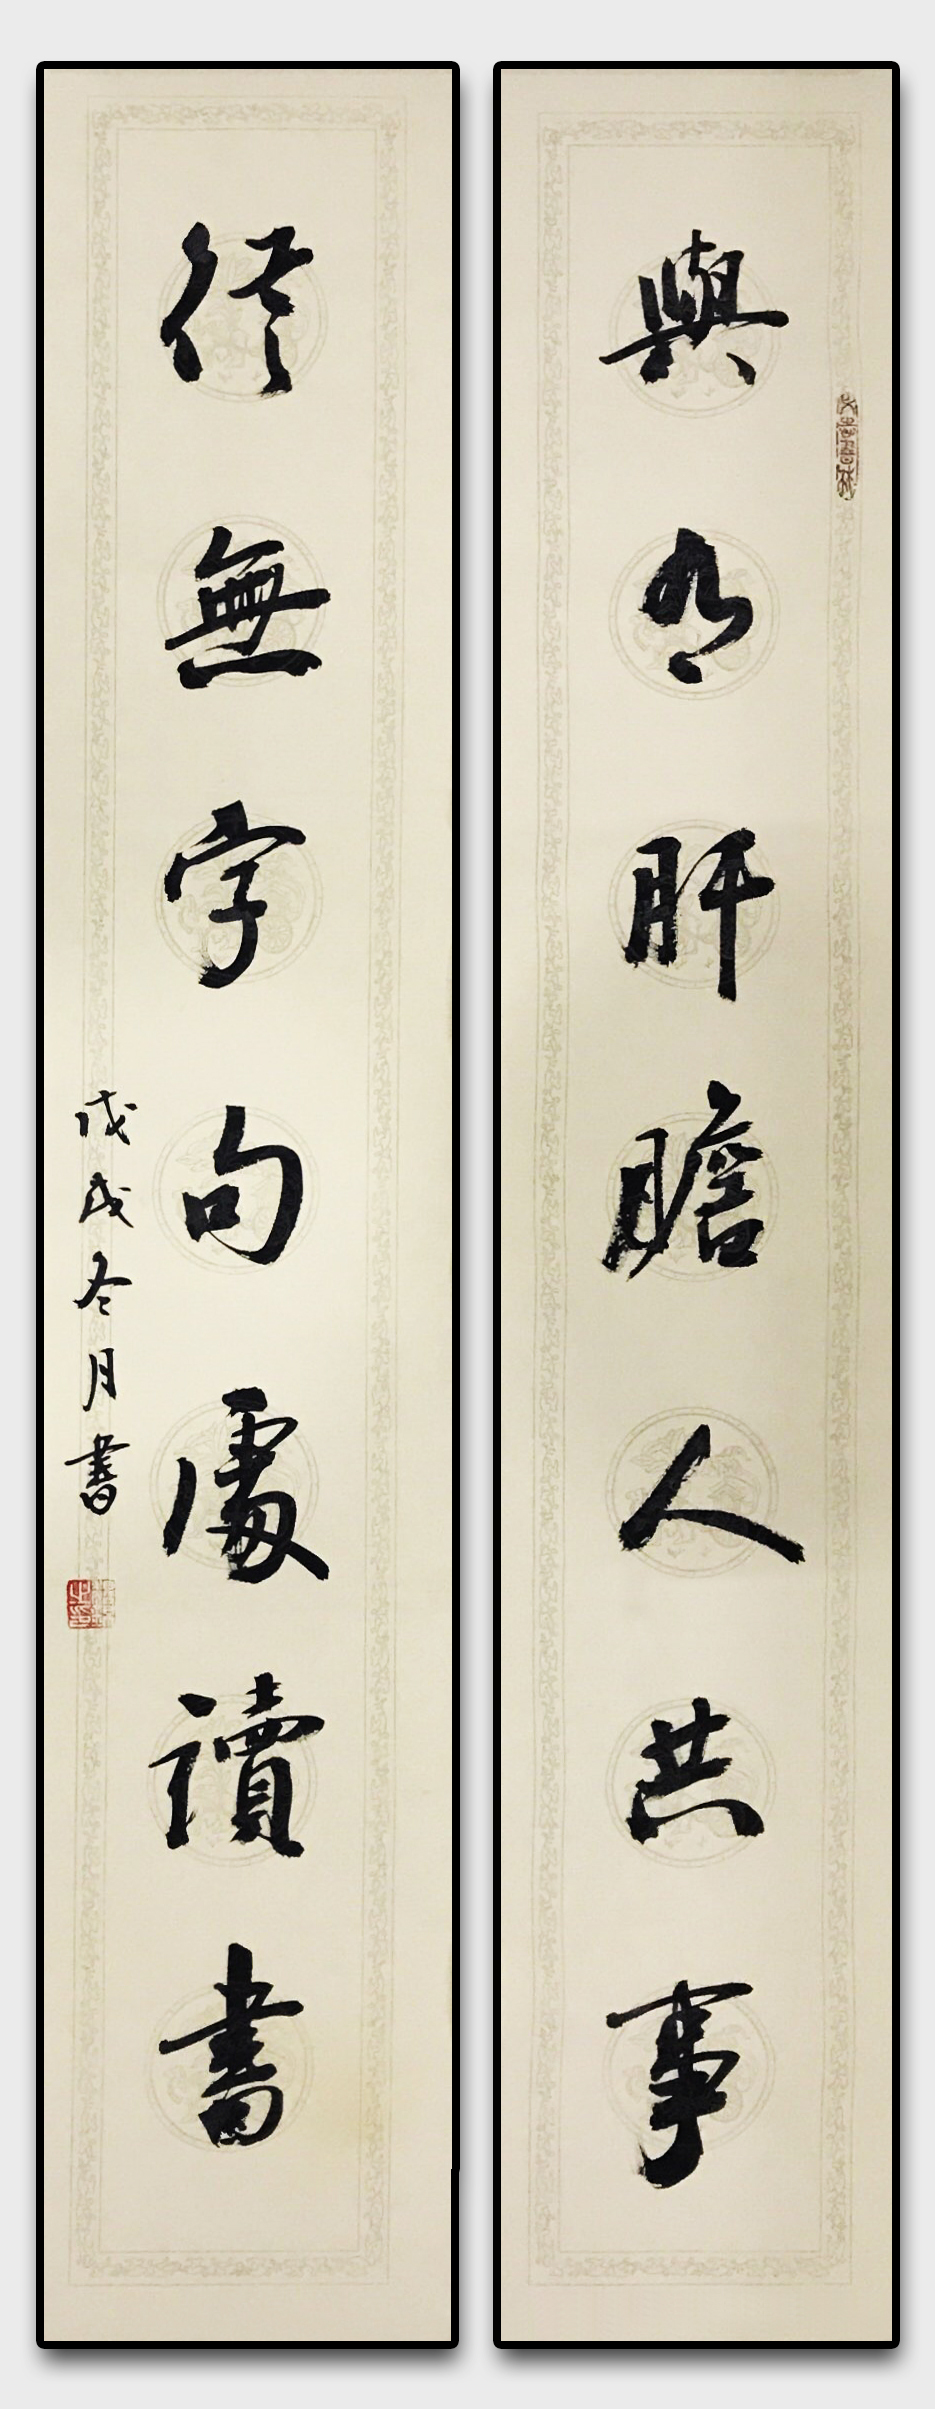 與有肝膽人共事
從無字句處讀書
戊戌冬月書